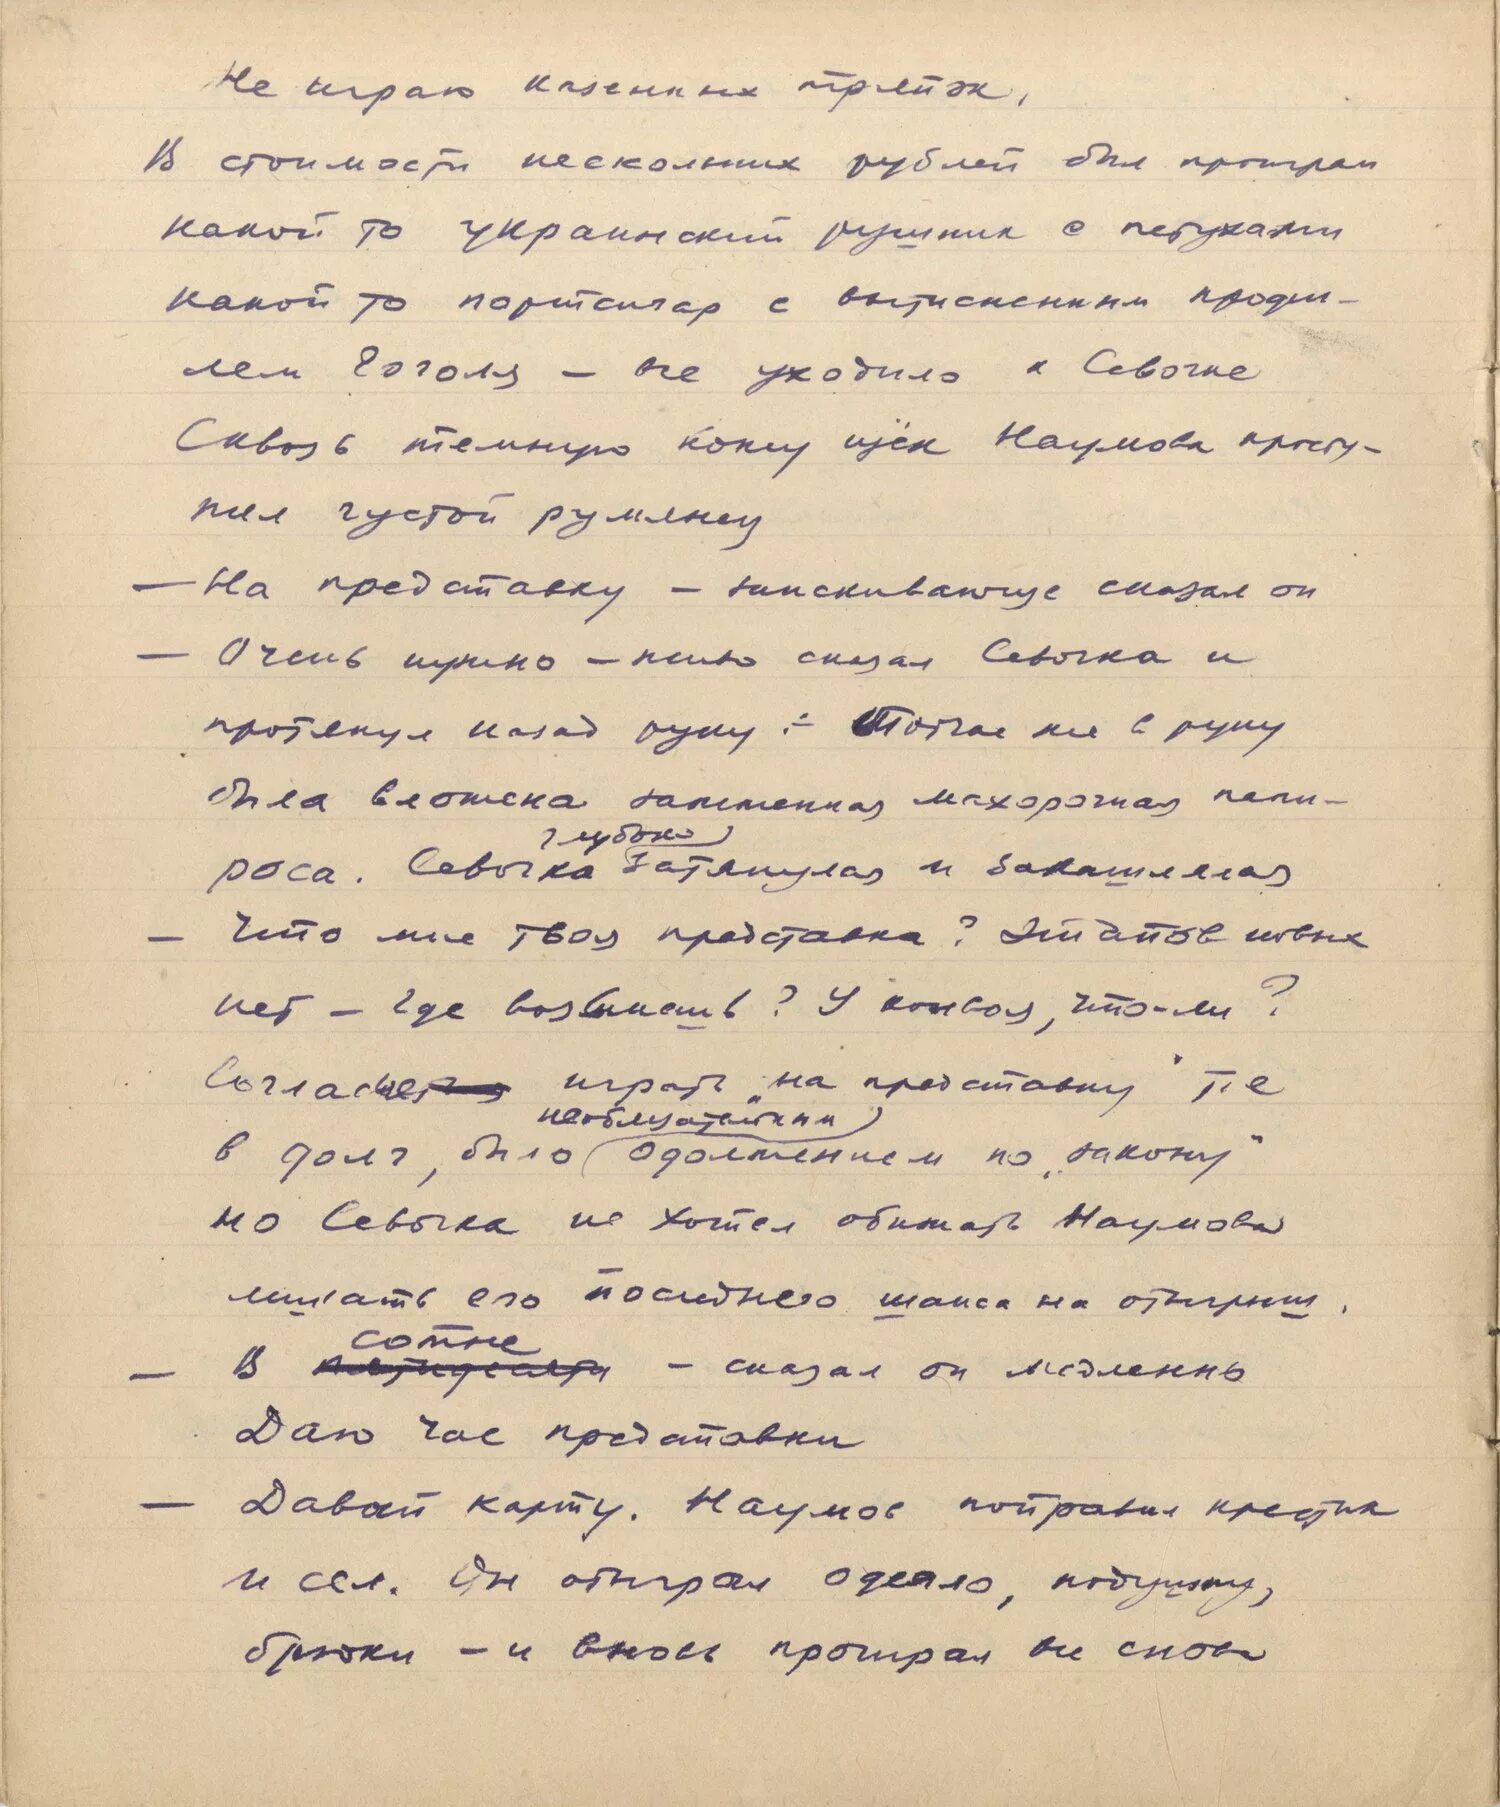 Не играю казенных тряпок.
В стоимости нескольких рублей был проигран
какой то украинский рушник с петухами
какой то портсигар с вытисненным профи-
лем Гоголя – все уходило к Севочке
Сквозь темную кожу щёк Наумова просту-
пил густой румянец
– На представку – заискивающе сказал он
– Очень нужно – живо сказал Севочка и
протянул назад руку : Тотчас же в руку
была вложена зажженная махорочная папи-
роса. Севочка глубоко затянулся и закашлялся
– Что мне твоя представка? Этапов новых
нет – где возьмешь? У конвоя, что-ли?
Согласие играть „на представку" т.е
в долг, было необязательным одолжением по „закону"
но Севочка не хотел обижать Наумова
лишать его последнего шанса на отыгрыш.
– В сотне – сказал он медленно
Даю час представки
– Давай карту. Наумов поправил крестик
и сел. Он отыграл одеяло, подушку,
брюки – и вновь проиграл все снова